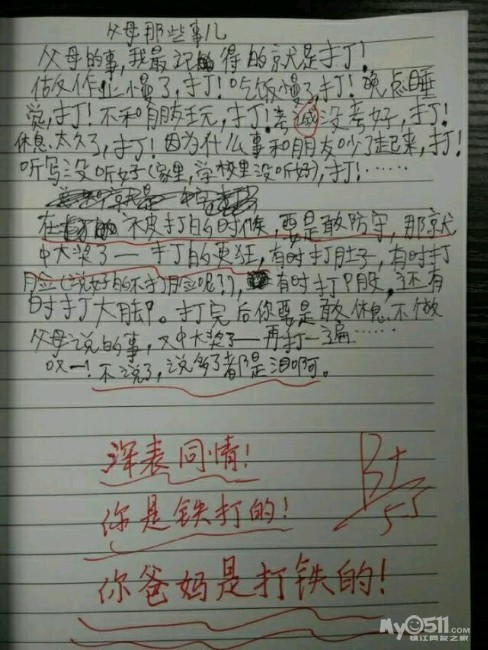 父母那些事儿
父母的事，我最记的得的就是打！
做作业慢了，打！吃饭慢了，打！晚点睡
觉，打！不和朋友玩，打！考试没考好，打！
休息太久了，打！因为什么事和朋友吵了起来，打！
听写没听好（家里，学校里没听好），打！……
在 不皮打的时候，要是敢防守，那就
中大奖了——打的更狂，有时打肚子，有时打
脸（说好的不打脸呢！），有时打屁股，还有
时打大脚。打完后你要是敢休息、不做
父母说的事，又中大奖了——再打一遍……
哎——！不说了，说多了都是泪啊。
深表同情！
你是铁打的！
你爸妈是打铁的！
B+
My0511.com
镇江网友之家